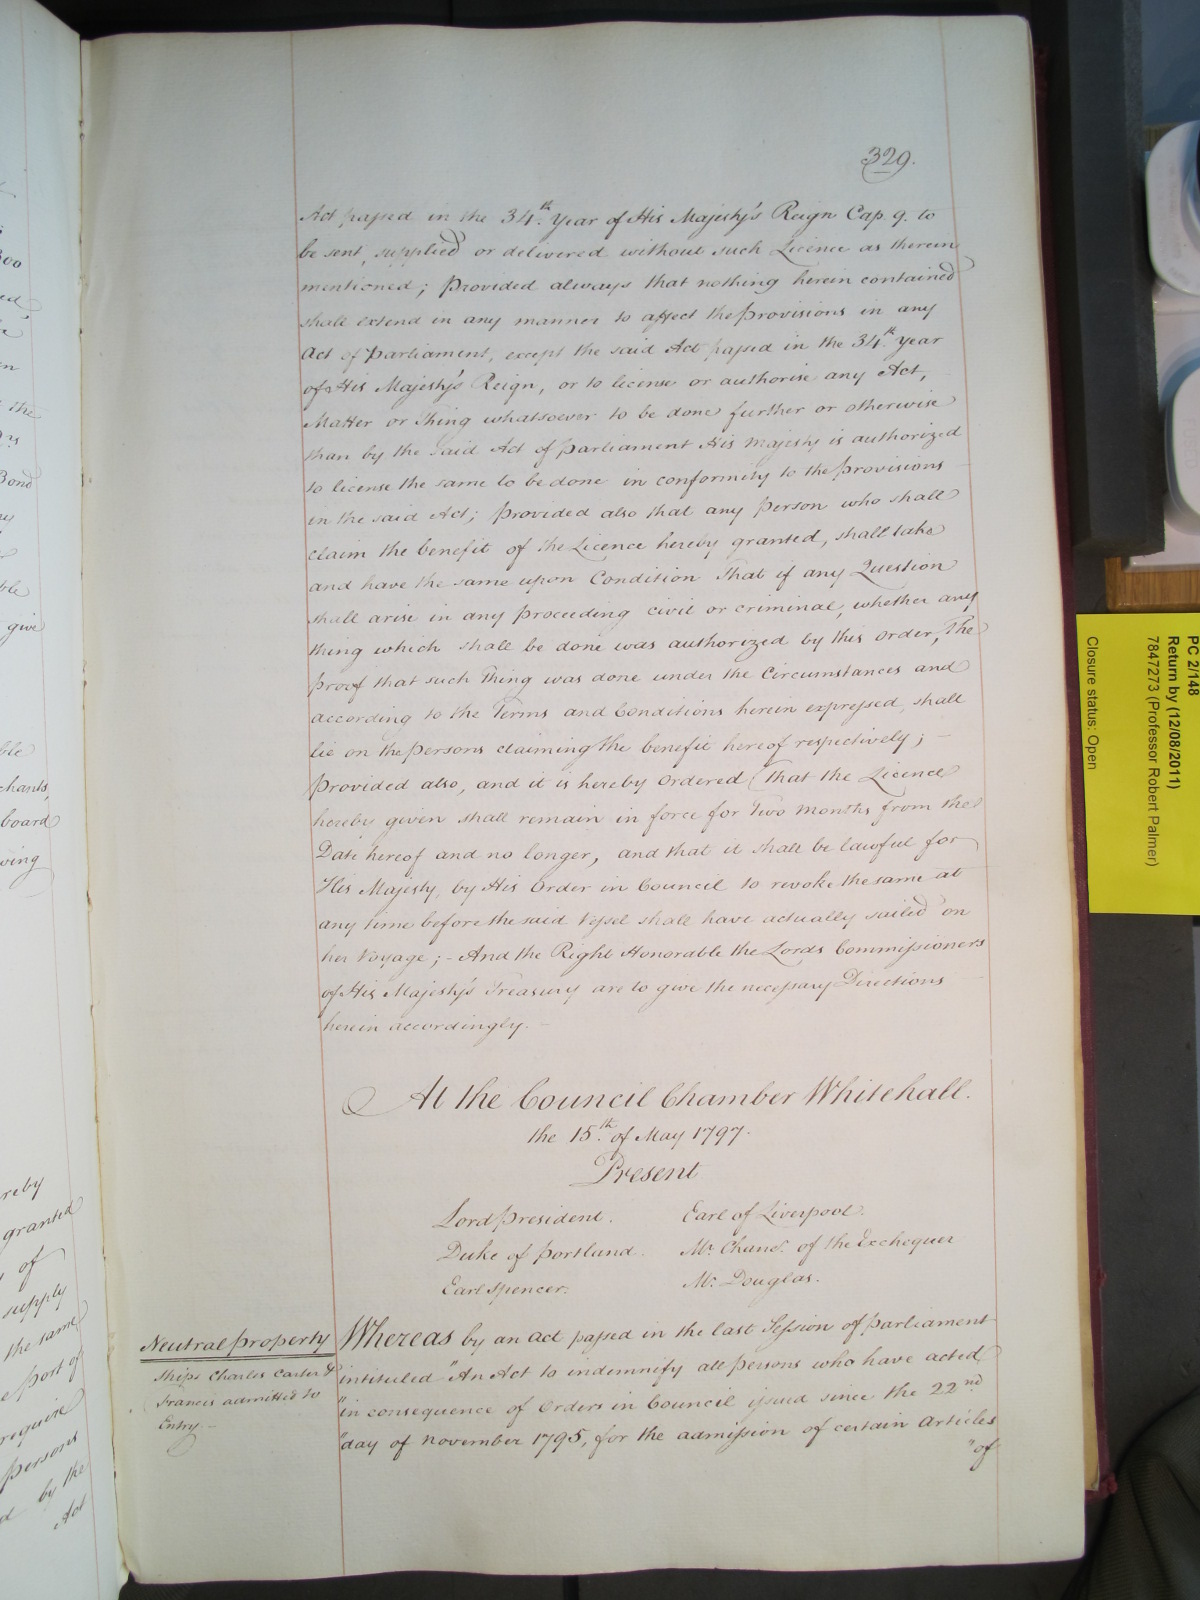 329.
Act passed in the 34th. Year of His Majesty's Reign Cap. 9. to
be sent, supplied or delivered without such Licence as therein
mentioned; Provided always that nothing herein contained
shall extend in any manner to affect the Provisions in any
Act of Parliament, except the said Act passed in the 34th. Year
of His Majesty's Reign, or to license or authorise any Act,
Matter or Thing whatsoever to be done further or otherwise
than by the said Act of Parliament His Majesty is authorized
to license the same to be done in conformity to the Provisions
in the said Act; Provided also that any Person who shall
claim the benefit of the Licence hereby granted, shall take
and have the same upon Condition That if any Question
shall arise in any Proceeding civil or criminal, whether any
thing which shall be done was authorized by this Order, The
Proof that such Thing was done under the Circumstances and
according to the Terms and Conditions herein expressed, shall
lie on the Persons claiming the benefit hereof respectively; -
Provided also, and it is hereby Ordered That the Licence
hereby given shall remain in force for Two Months from the
Date hereof and no longer, and that it shall be lawful for
His Majesty, by His Order in Council to revoke the same at
any time before the said Vessel shall have actually sailed on
her Voyage; - And the Right Honorable the Lords Commissioners
of His Majesty's Treasury are to give the necessary Directions
herein accordingly. -
At the Council Chamber Whitehall.
the 15th. of May 1797.
Present
Lord President. Earl of Liverpool.
Duke of Portland. Mr. Chanr. of the Exchequer
Earl Spencer. Mr. Douglas.
Neutral Property
Ships Charles Carter &
Francis admitted to
Entry -
Whereas by an Act passed in the last Session of Parliament
intituled "An Act to indemnify all Persons who have acted
"in consequence of Orders in Council issued since the 22nd
"day of November 1795, for the admission of certain Articles
"of
300
the
Bond
give
chants,
board
wing
reby
granted
of
supply
the same
Port of
require
Persons
by the
Act
PC 2/148
Return by (12/08/2011)
7847273 (Professor Robert Palmer)
Closure status: Open